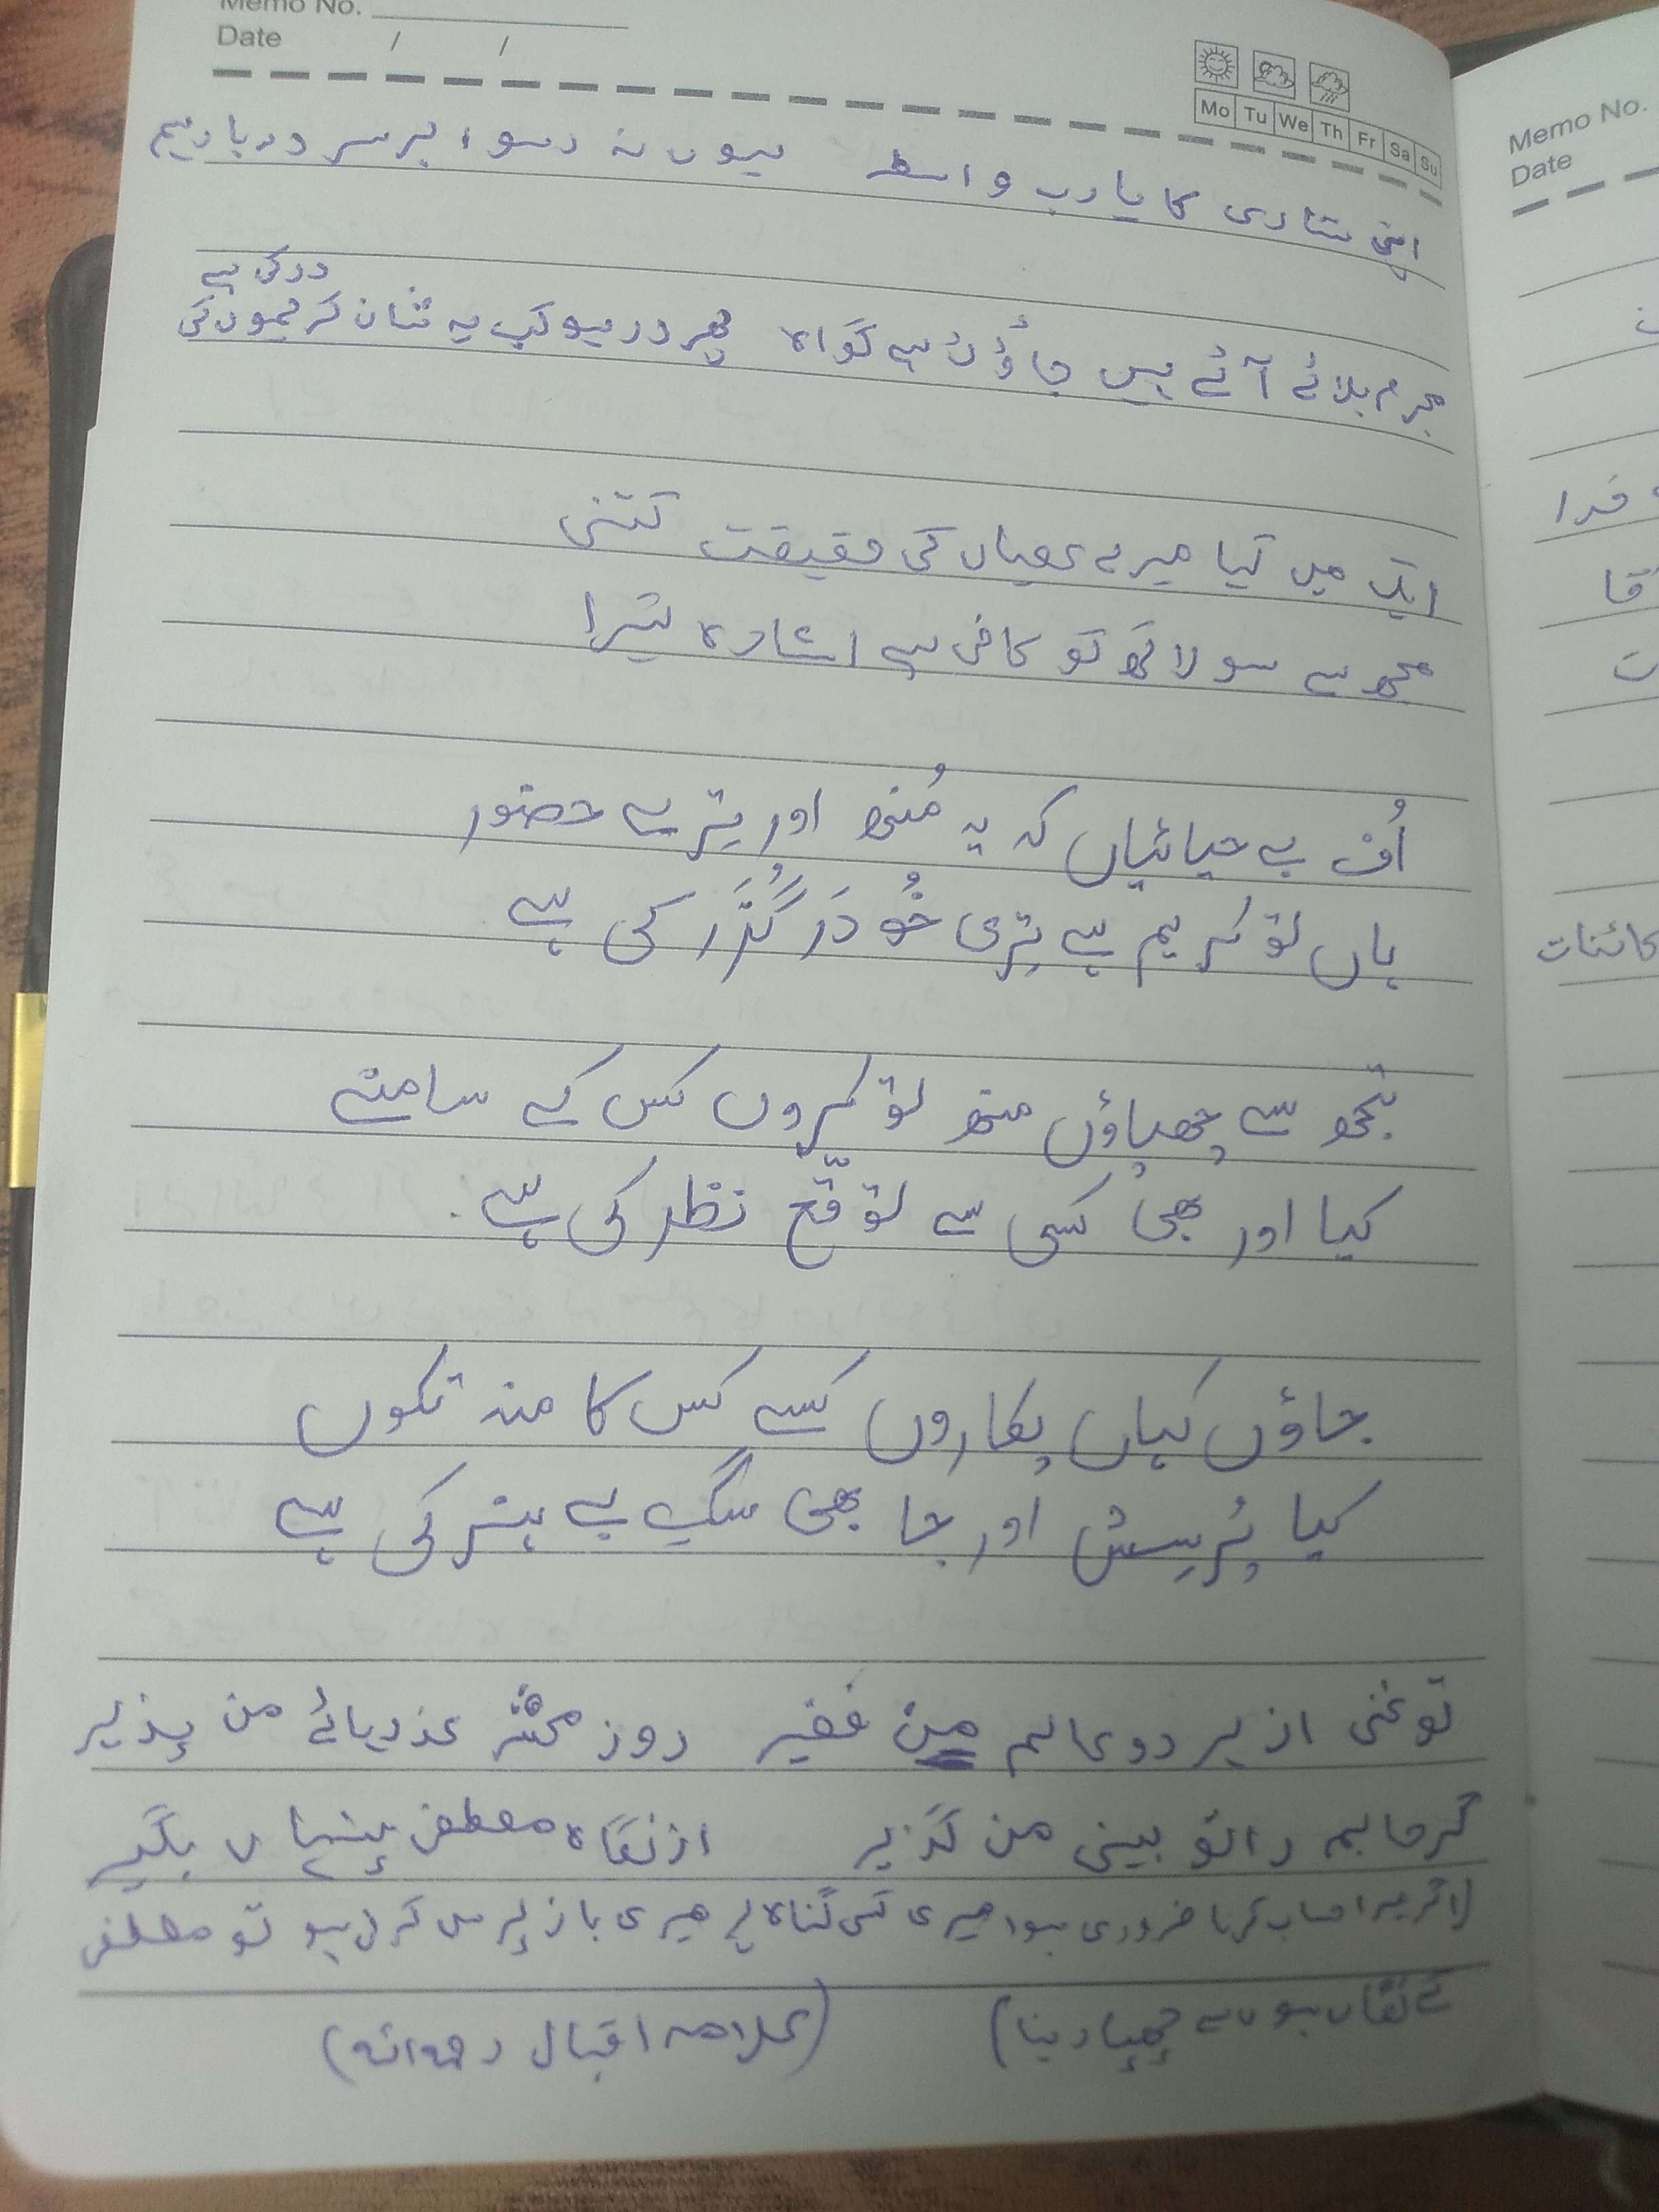 Memo No.
Date / /
Mo Tu We Th Fr Sa Su
اپنی ستاری کا یارب واسطہ ہوں نہ رسوا برسر دربار ہم
مجرم بلائے آئے ہیں جاؤک ہے گواہ پھر رد ہو کب یہ شان کریموں کی
در کی ہے
ایک میں کیا میرے عصیاں کی حقیقت کتنی
مجھ سے سو لاکھ کو کافی ہے اشارہ تیرا
اُف بے حیائیاں کہ یہ مُنھ اور تیرے حضور
ہاں تو کریم ہے تری خُو دَر گُزَر کی ہے
تجھ سے چھپاؤں منھ تو کروں کس کے سامنے
کیا اور بھی کسی سے توقّع نظر کی ہے.
جاؤں کہاں پکاروں کسے کس کا منہ تکوں
کیا پُرسِش اور جا بھی سگِ بے ہنر کی ہے
تو غنی از ہر دو عالم من فقیر روز محشر عذر ہائے من پذیر
گر حسابم را تو بینی من گزیر از نگاہ مصطفی پنہاں بگیر
(اگر میرا حساب کرنا ضروری ہوا میری کسی گناہ پر میری باز پرس کرنی ہو تو مصطفی
کے نگاہوں سے چھپا دینا) (علامہ اقبال رحمہ اللہ)
Memo No.
Date
فدا
قا
کائنات